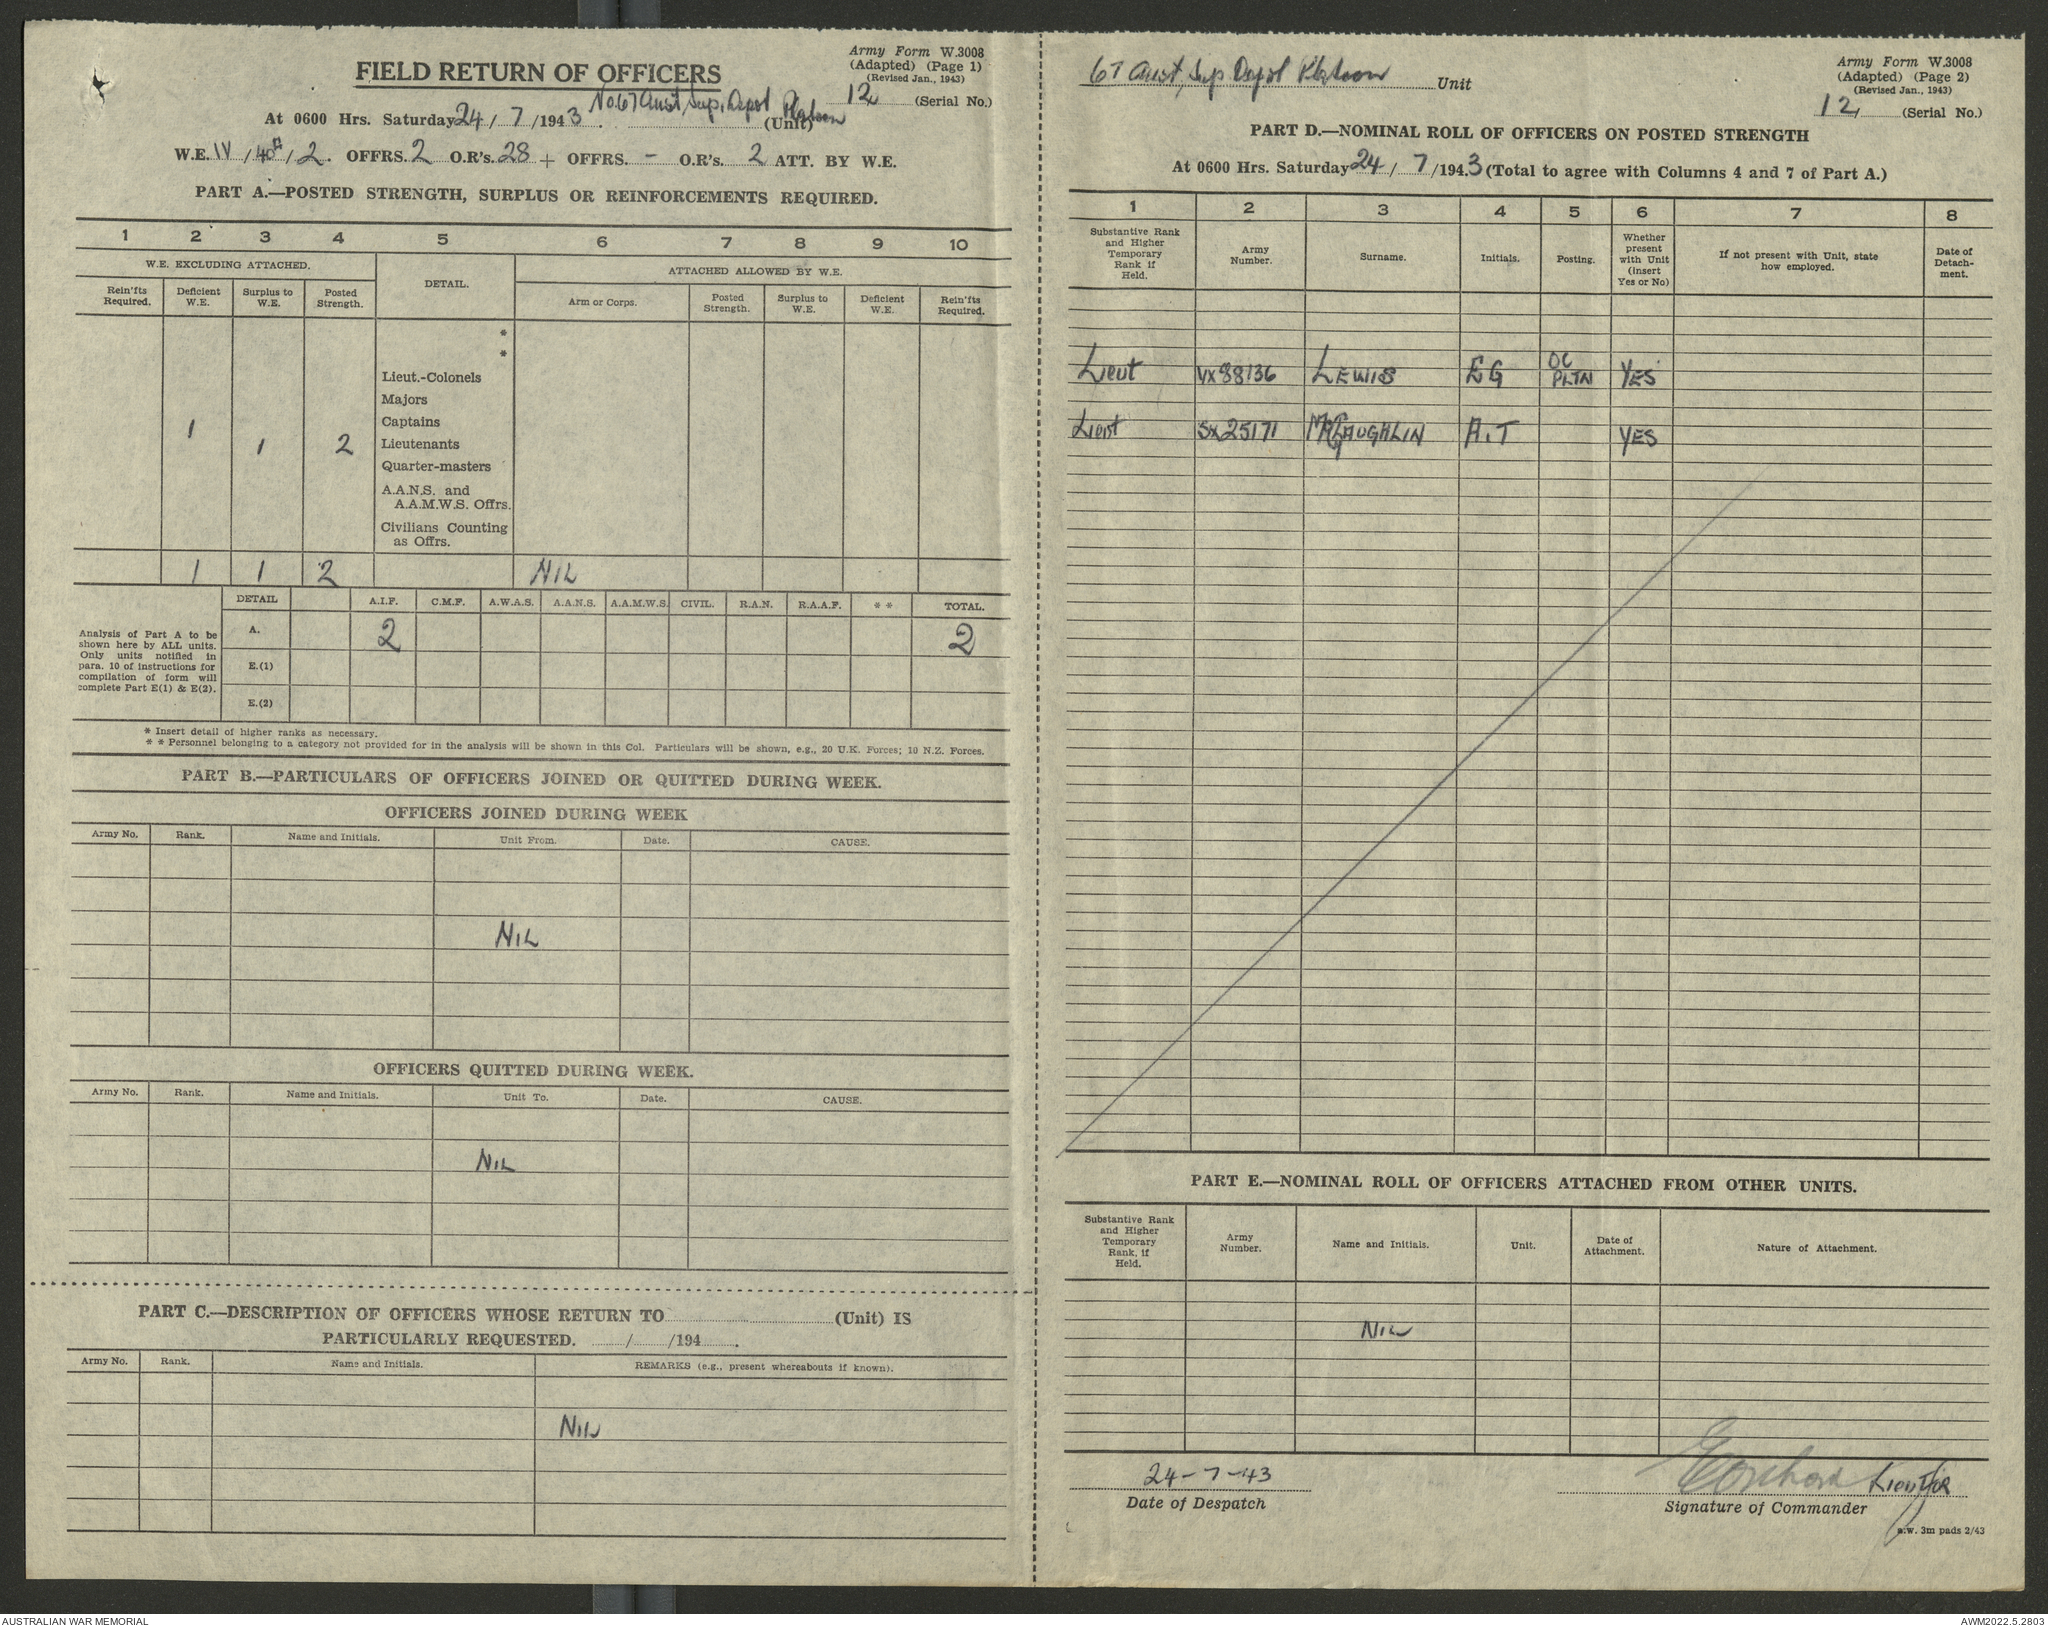 Army Form W.3008
(Adapted) (Page 1)
(Revised Jan., 1943)
FIELD RETURN OF OFFICERS
12 (Serial No.)
At 0600 Hrs. Saturday 24/7/1943. No. 67 Aust. Sup. Depot Platoon (Unit)
W.E. IV/40A/2. OFFRS. 2 O.R's. 28 + OFFRS. - O.R's. 2 ATT. BY W.E.
PART A.—POSTED STRENGTH, SURPLUS OR REINFORCEMENTS REQUIRED.
1 2 3 4 5 6 7 8 9 10
W.E. EXCLUDING ATTACHED. DETAIL. ATTACHED ALLOWED BY W.E.
Rein'fts Required. Deficient W.E. Surplus to W.E. Posted Strength. Arm or Corps. Posted Strength. Surplus to W.E. Deficient W.E. Rein'fts Required.
*
*
Lieut.-Colonels
Majors
1 Captains
1 2 Lieutenants
Quarter-masters
A.A.N.S. and
A.A.M.W.S. Offrs.
Civilians Counting
as Offrs.
1 1 2 NIL
DETAIL A.I.F. C.M.F. A.W.A.S. A.A.N.S. A.A.M.W.S. CIVIL. R.A.N. R.A.A.F. * * TOTAL.
Analysis of Part A to be
shown here by ALL units.
Only units notified in
para. 10 of instructions for
compilation of form will
complete Part E(1) & E(2).
A. 2 2
E.(1)
E.(2)
* Insert detail of higher ranks as necessary.
* * Personnel belonging to a category not provided for in the analysis will be shown in this Col. Particulars will be shown, e.g., 20 U.K. Forces; 10 N.Z. Forces.
PART B.—PARTICULARS OF OFFICERS JOINED OR QUITTED DURING WEEK.
OFFICERS JOINED DURING WEEK
Army No. Rank. Name and Initials. Unit From. Date. CAUSE.
NIL
OFFICERS QUITTED DURING WEEK.
Army No. Rank. Name and Initials. Unit To. Date. CAUSE.
NIL
PART C.—DESCRIPTION OF OFFICERS WHOSE RETURN TO (Unit) IS
PARTICULARLY REQUESTED. / /194 .
Army No. Rank. Name and Initials. REMARKS (e.g., present whereabouts if known).
NIL
67 Aust. Sup. Depot Platoon Unit
Army Form W.3008
(Adapted) (Page 2)
(Revised Jan., 1943)
12 (Serial No.)
PART D.—NOMINAL ROLL OF OFFICERS ON POSTED STRENGTH
At 0600 Hrs. Saturday 24/7/1943 (Total to agree with Columns 4 and 7 of Part A.)
1 2 3 4 5 6 7 8
Substantive Rank and Higher Temporary Rank if Held. Army Number. Surname. Initials. Posting. Whether present with Unit (insert Yes or No) If not present with Unit, state how employed. Date of Detach-ment.
Lieut VX88136 LEWIS EG OC PLTN YES
Lieut SX25171 A.T YES
PART E.—NOMINAL ROLL OF OFFICERS ATTACHED FROM OTHER UNITS.
Substantive Rank and Higher Temporary Rank, if Held. Army Number. Name and Initials. Unit. Date of Attachment. Nature of Attachment.
NIL
24-7-43
Date of Despatch
Lieut for
Signature of Commander
a.w. 3m pads 2/43
AUSTRALIAN WAR MEMORIAL
AWM2022.5.2803